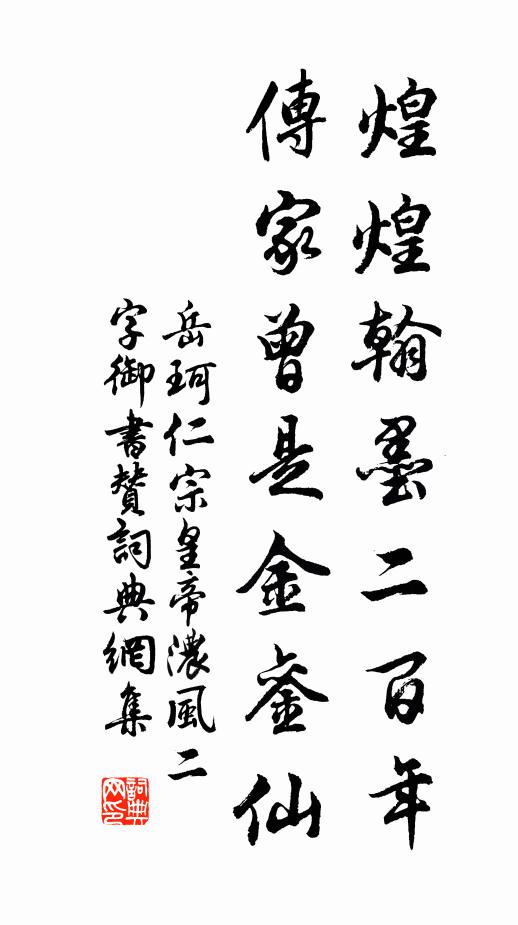 煌煌翰墨二百年
傳家曾是金銮仙
岳珂仁宗皇帝濃風二
字御書贊詞典網集
詞典
网印